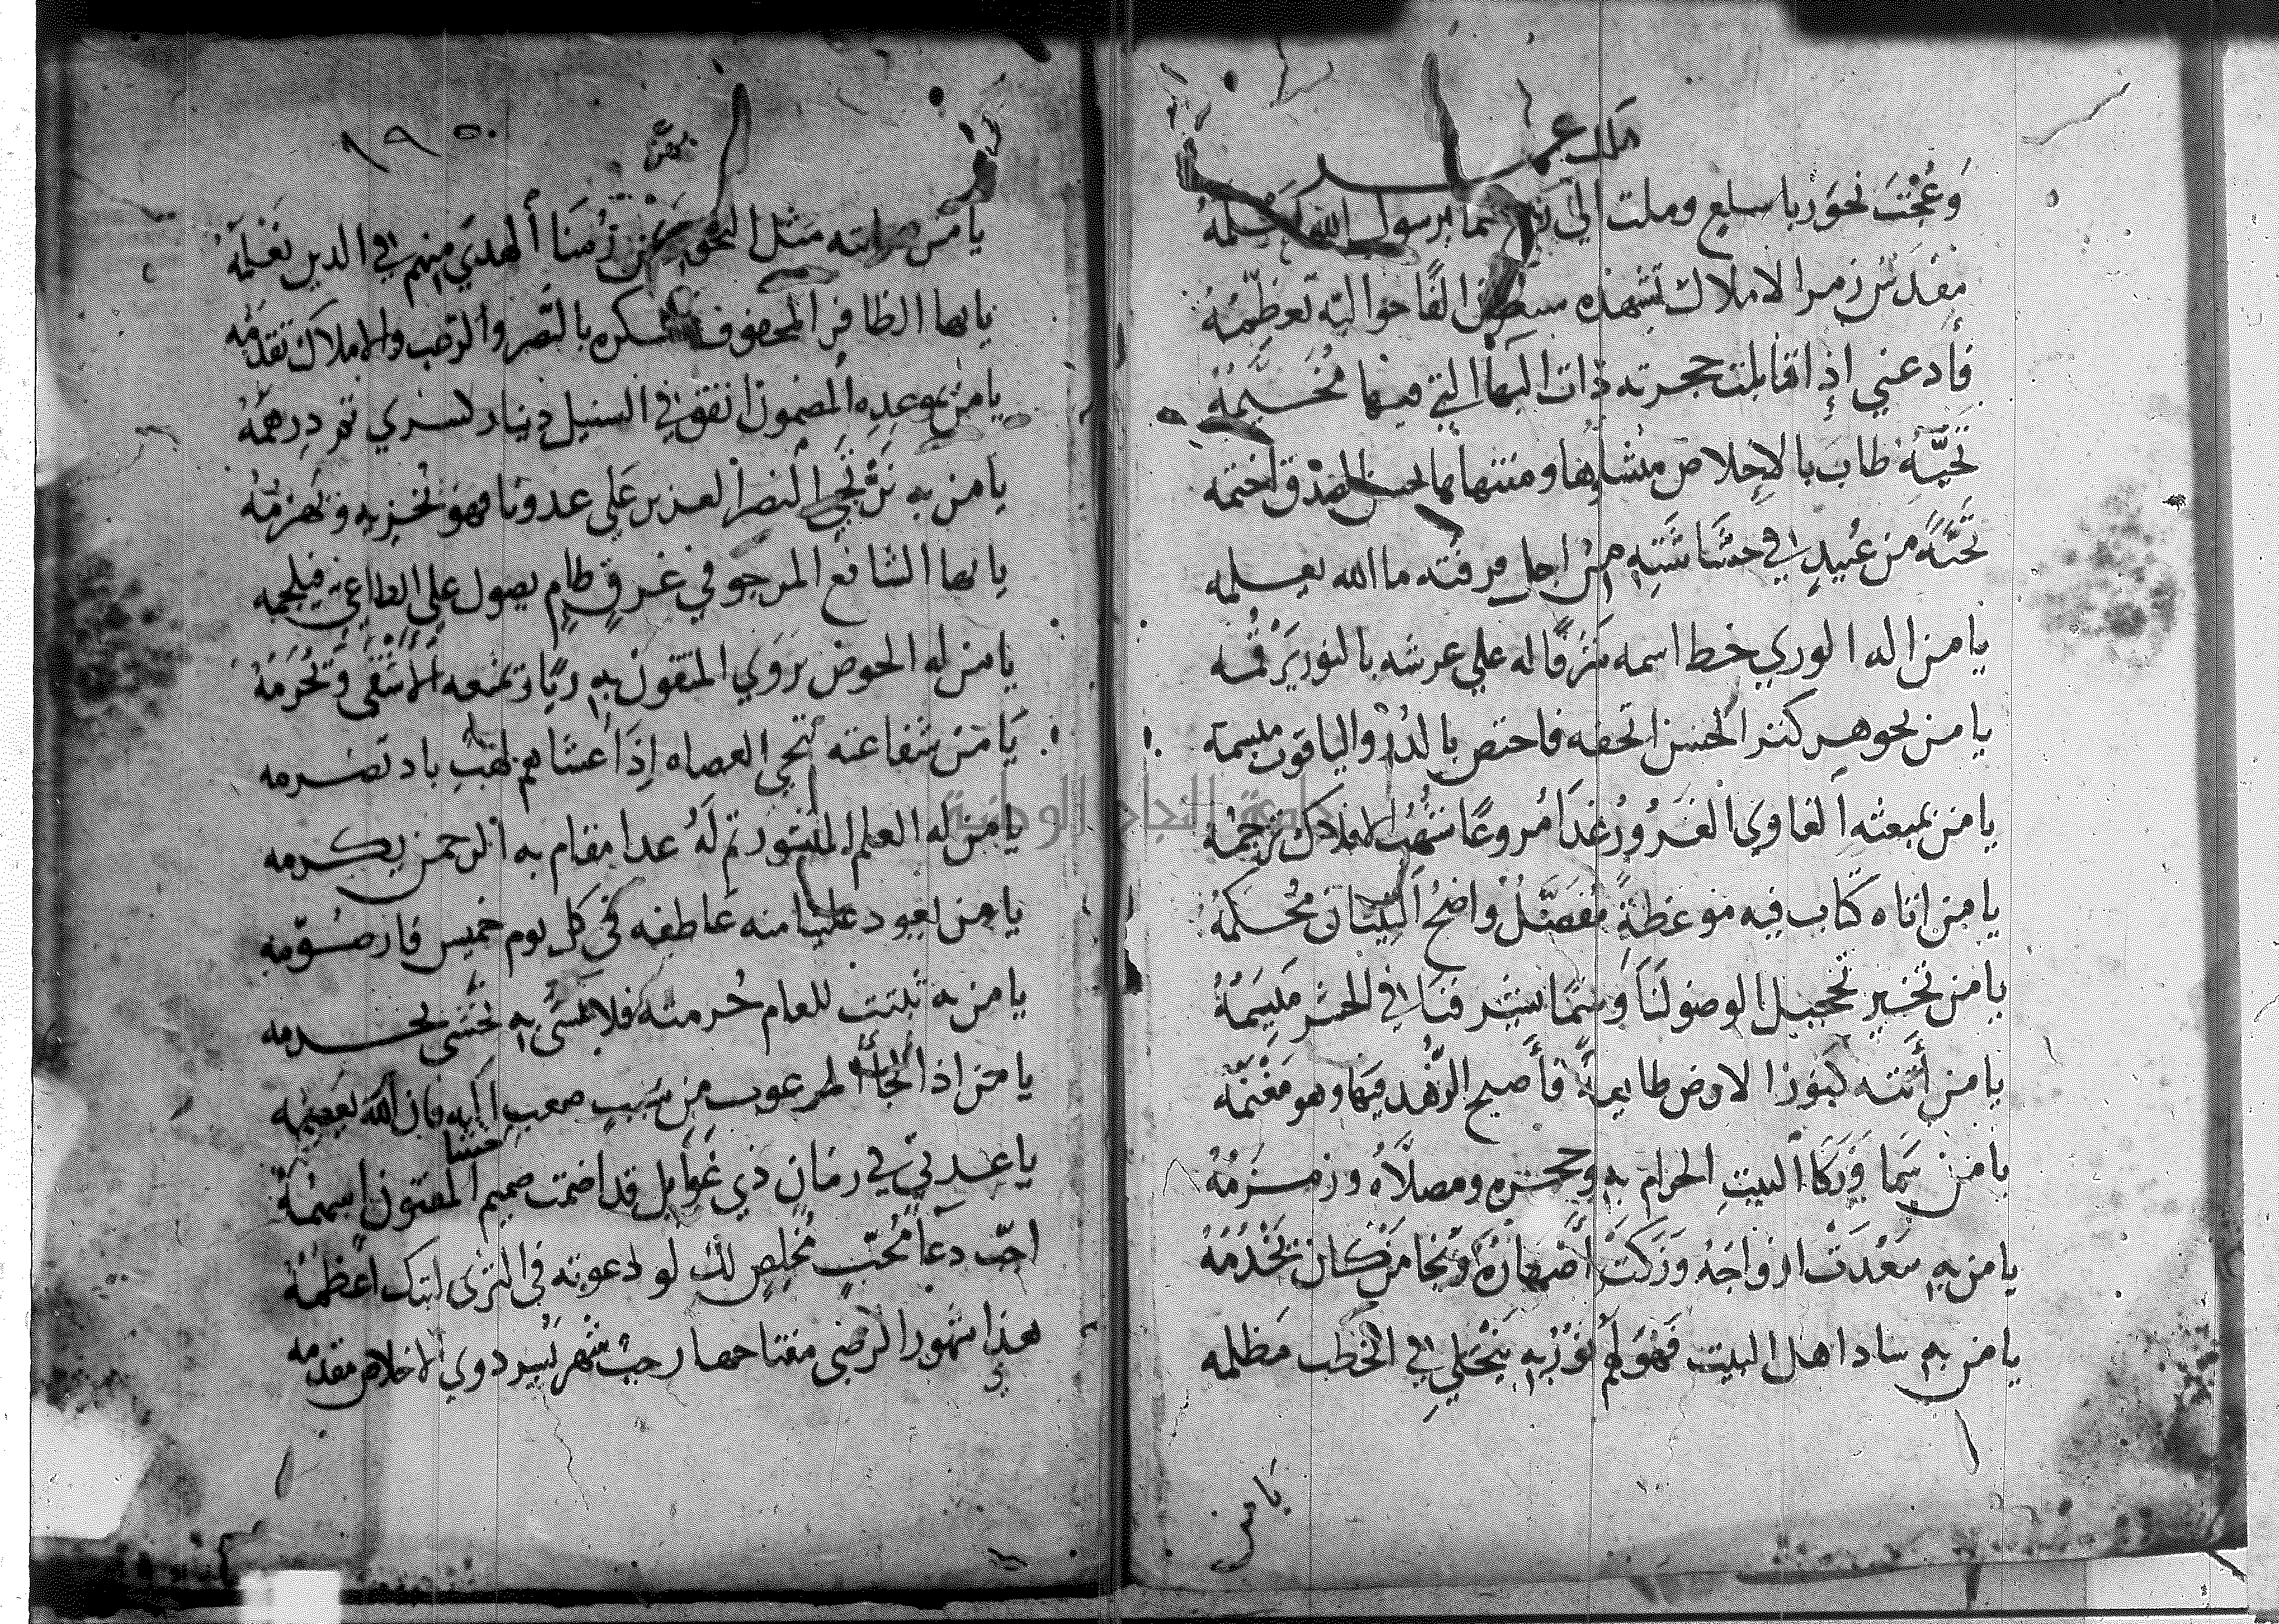 ملك
وَعُجْتَ نحوَ ربا سلع وملت الى برسول الله
زمر الاملاك تشهده الفا حواليه تعظمه
فادعني اذا قابلت حجرته ذات البها التي فيها مُخَيَّمُهُ
تحيّة طاب بالاخلاص منشاوها ومنتهاها الصدق اختمه
من عُبيدٍ في حشاشته من اجل فرقته ما الله يعلمه
يا من اله الوري خط اسمه شرفا له علي عرشه بالنور يرقمه
يا من بجوهر كنز الحسن اتحفه فاختص بالدُرّ والياقوت مبسمه
يا من بمبعثه الغاوي الغَرُورُ غدَا مُروعًا شُهُب الافلاك ترجمُه
يا من اتاه كتاب فيه موعظةً مُفصَّلُ واضحُ التبيان مُحْكمُهُ
يا من بخير تحجيل الوضو لنا في الحشر مَيْسَمُهُ
يا من أتته كنوز الارض طايعةً فأصبح الزهد فيها وهو مغنمه
يا من سَما وَزكا البيت الحرام به وحجره ومصلاهُ وزمزمُهُ
يا من به سَعُدَتْ ازواجهُ وَزَكَتْ أصْهارُهُ وَنجا مَنْ كان يخْدُمُهُ
يا من به ساد اهل البيت فَهْوَ لهم نُوْرٌ به ينجلي في الخطب مظلمه
يا من
١٩٥
يا من صحابته مثل النجوم أ الهدي منهم في الدين
يا ايها الظافر المحفوف عسكره بالنصر والرعب والاملاك تقدمه
يا من بموعده المضمون انفق في السبيل دينار كسري ثم درهمُهُ
يا من به نرتجي النصر العزيز علي عدونا فهو نخزيه ونهزمُهُ
يا ايها الشافع المرجو في غرقٍ طامٍ يصول علي الطاغي فيلجمه
يا من له الحوض يروي المتقون به ريا وتمنعه الاشقى وتُحْرَمُهُ
يا من شفاعته تنجي العصاه إذا غشاهم لهب باد تضرمه
يا من له العلم المنشور ثم لهُ غدا مقام به الرحمن يكرمه
يا من يعود علينا منه عاطفه في كل يوم خميس
يا من به ثبتت للعام حُرمته فلا
يا من اذا لجأ المرعوب من سَبَبٍ صعبٍ اليه فان الله يعصمه
يا عدتي في زمانٍ ذي غوايل قد اصْمت صميم حشا المفتون اسهمُهُ
اجب دعاَ محبٍّ مُخلصٍ لك لو دعوته في الثرى لبتك اعظمُهُ
هذا شهور الرضي مفتاحها رجبٌ شهر يُسر ذوي الاخلاص مقدمه
جامعة النجاح الوطنية